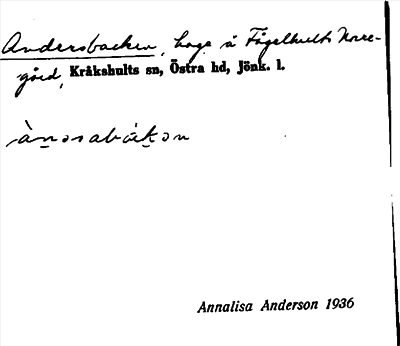 Andersbacken, hage å Fågelhults Norre-
gård, Kråkshults sn, Östra hd, Jönk. l.
ànǝsabákǝn
Annalisa Anderson 1936